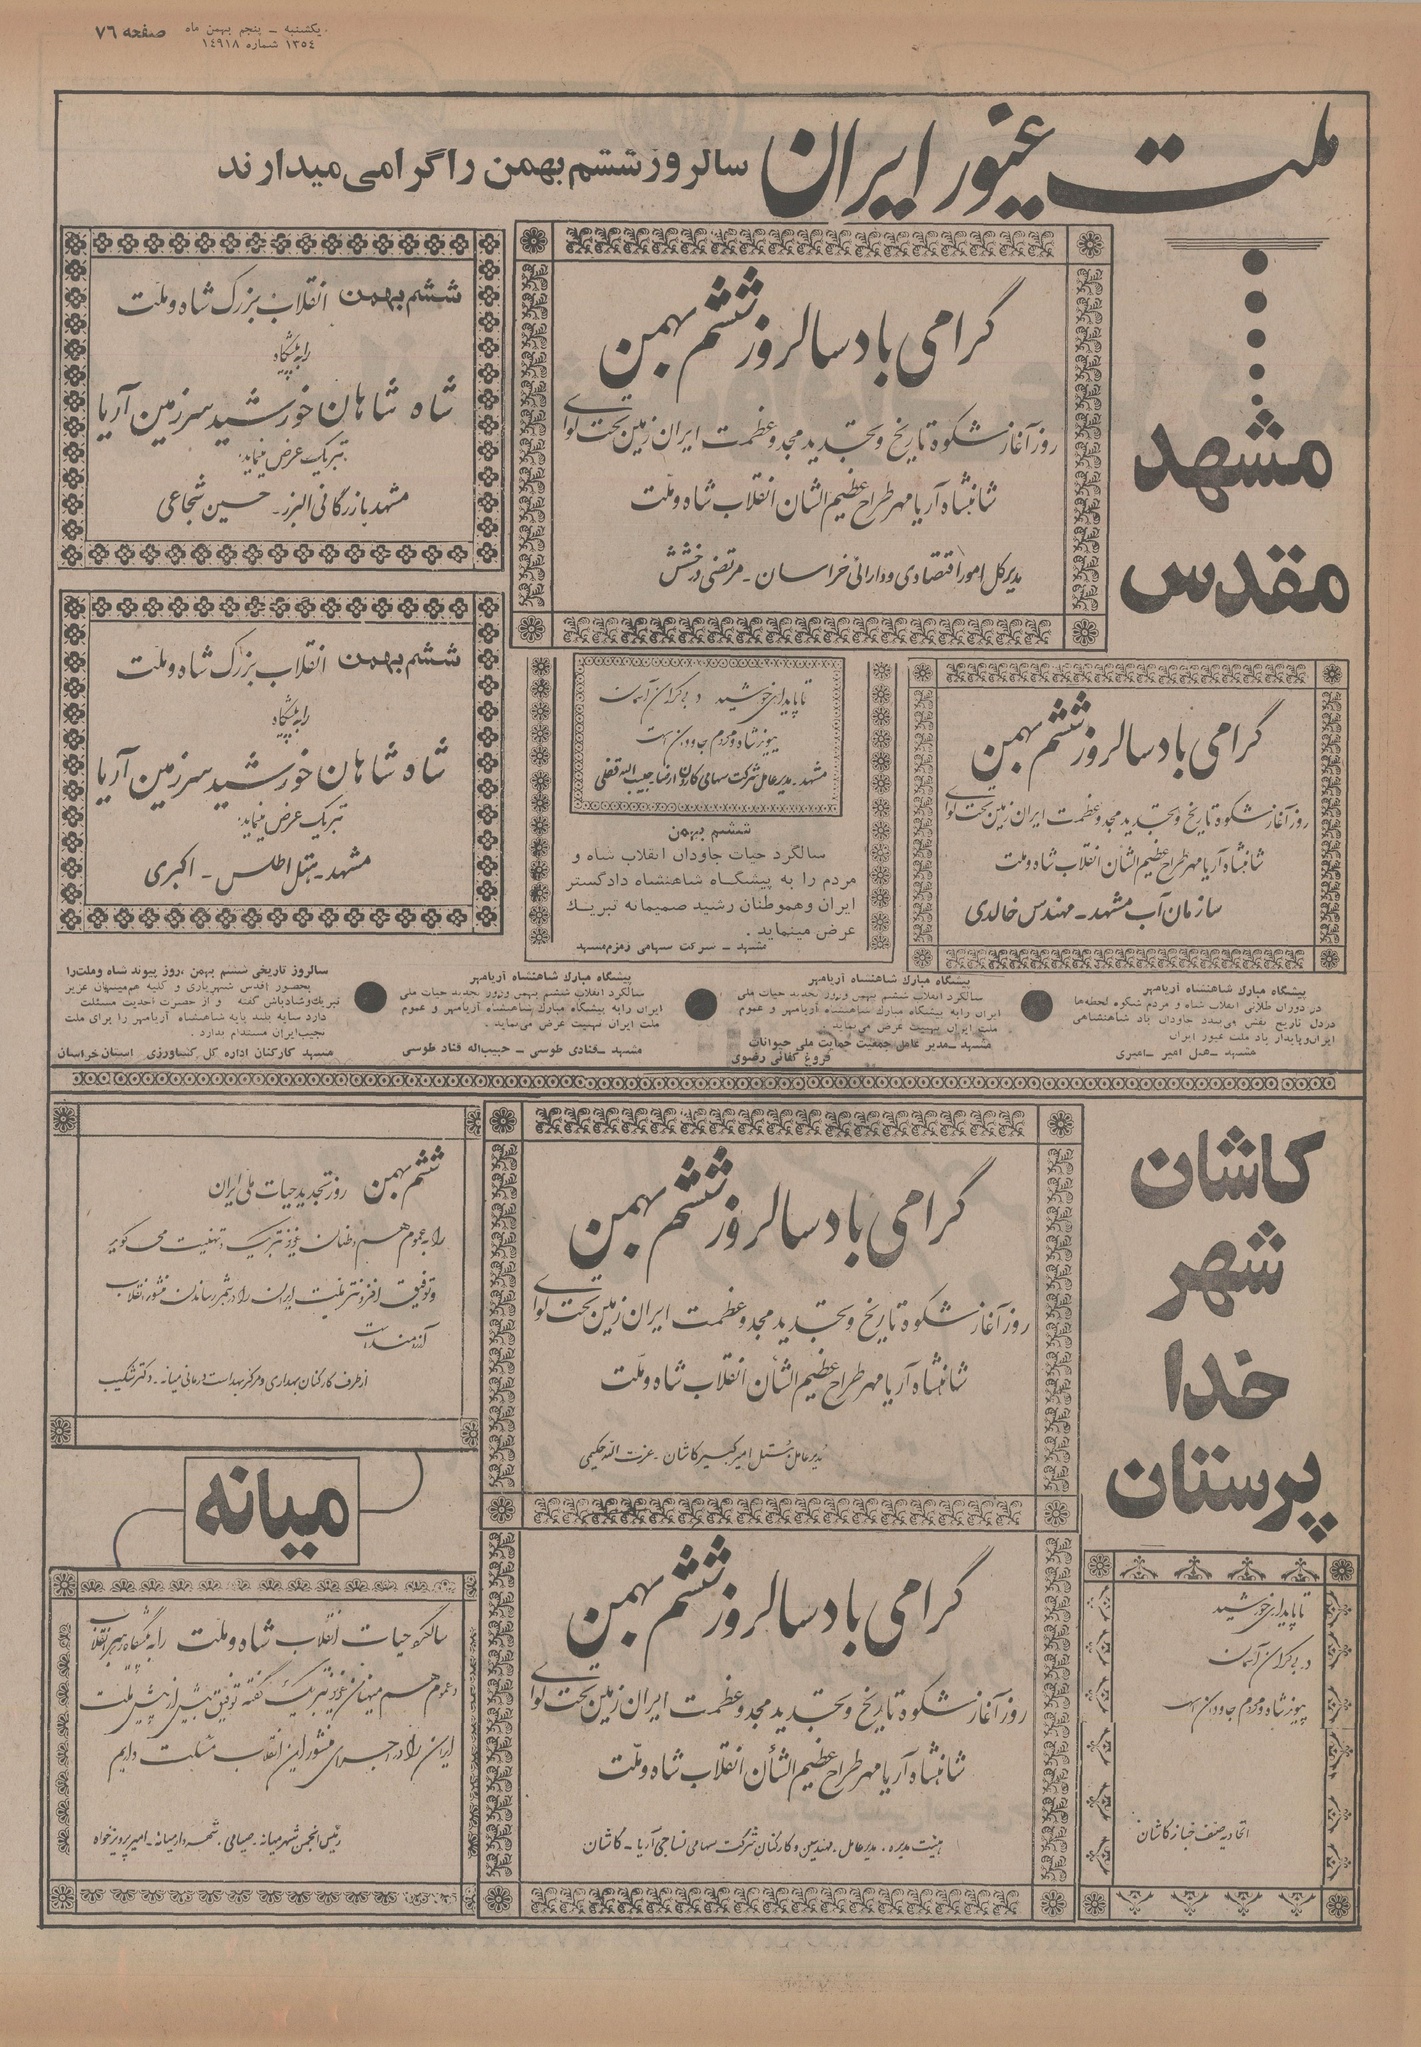 یکشنبه ـ پنجم بهمن ماه
۱۳۵٤ شماره ۱٤۹۱۸
صفحه ۷٦
ملت غیور ایران سالروز ششم بهمن را گرامی میدارند
مشهد
مقدس
گرامی باد سالروز ششم بهمن
روز آغاز شکوه تاریخ و تجدید مجد و عظمت ایران زمین تحت لوای
شاهنشاه آریامهر طراح عظیم الشان انقلاب شاه و ملت
مدیر کل امور اقتصادی و دارائی خراسان ـ مرتضی درخشش
ششم بهمن انقلاب بزرگ شاه و ملت
را به پیشگاه
شاه شاهان خورشید سرزمین آریا
تبریک عرض مینماید.
مشهد بازرگانی البرز ـ حسین شجاعی
گرامی باد سالروز ششم بهمن
روز آغاز شکوه تاریخ و تجدید مجد و عظمت ایران زمین تحت لوای
شاهنشاه آریامهر طراح عظیم الشان انقلاب شاه و ملت
سازمان آب مشهد ـ مهندس خالدی
تا پایداری خورشید در بی‌کران آسمان
پیوند شاه و مردم جاودان است
مشهد ـ مدیر عامل شرکت سهامی کارون ارضا حبیب الله قفلی
ششم بهمن
سالگرد حیات جاودان انقلاب شاه و
مردم را به پیشگاه شاهنشاه دادگستر
ایران وهموطنان رشید صمیمانه تبریک
عرض مینماید .
مشهد ـ شرکت سهامی زمزم مشهد
ششم بهمن انقلاب بزرگ شاه و ملت
را به پیشگاه
شاه شاهان خورشید سرزمین آریا
تبریک عرض مینماید.
مشهد ـ هتل اطلس ـ اکبری
پیشگاه مبارک شاهنشاه آریامهر
در دوران طلائی انقلاب شاه و مردم شکوه لحظه‌ها
دردل تاریخ نقش می‌بندد جاودان باد شاهنشاهی
ایران‌وپایدار باد ملت غیور ایران
مشهد ـ هتل امیر ـ امیری
پیشگاه مبارک شاهنشاه آریامهر
سالگرد انقلاب ششم بهمن وروز تجدید حیات ملی
ایران رابه پیشگاه مبارک شاهنشاه آریامهر و عموم
ملت ایران تهنیت عرض می‌نماید .
مشهد ـ مدیر عامل جمعیت حمایت ملی حیوانات
فروغ کفائی رضوی
پیشگاه مبارک شاهنشاه آریامهر
سالگرد انقلاب ششم بهمن وروز تجدید حیات ملی
ایران رابه پیشگاه مبارک شاهنشاه آریامهر و عموم
ملت ایران تهنیت عرض می‌نماید .
مشهد ـ قنادی طوسی ـ حبیب‌اله قناد طوسی
سالروز تاریخی ششم بهمن ،روز پیوند شاه وملت‌را
بحضور اقدس شهریاری و کلیه هم‌میهنان عزیز
تبریک‌وشادباش گفته و از حضرت احدیت مسئلت
دارد سایه بلند پایه شاهنشاه آریامهر را برای ملت
نجیب‌ایران مستدام بدارد .
مشهد کارکنان اداره کل کشاورزی استان خراسان
کاشان
شهر
خدا
پرستان
گرامی باد سالروز ششم بهمن
روز آغاز شکوه تاریخ و تجدید مجد و عظمت ایران زمین تحت لوای
شاهنشاه آریامهر طراح عظیم الشان انقلاب شاه و ملت
مدیر عامل هتل امیر کبیر کاشان ـ عزت الله حکیمی
ششم بهمن روز تجدید حیات ملی ایران
را به عموم هم وطنان عزیز تبریک و تهنیت می گوئیم
و توفیق افزونتر ملت ایران را در بثمر رساندن منشور انقلاب
آرزومند است
از طرف کارکنان بهداری و مرکز بهداشت درمانی میانه ـ دکتر شکیب
میانه
گرامی باد سالروز ششم بهمن
روز آغاز شکوه تاریخ و تجدید مجد و عظمت ایران زمین تحت لوای
شاهنشاه آریامهر طراح عظیم الشان انقلاب شاه و ملت
هیئت مدیره ، مدیر عامل ، مهندسین و کارکنان شرکت سهامی نساجی آریا ـ کاشان
تا پایداری خورشید
در بی‌کران آسمان
پیوند شاه و مردم جاودان است
اتحادیه صنف خباز کاشان
سالگرد حیات انقلاب شاه و ملت را به پیشگاه رهبر انقلاب
و عموم هم میهنان عزیز تبریک گفته توفیق بیش از پیش ملت
ایران را در اجرای منشور این انقلاب مسئلت داریم
رئیس انجمن شهر میانه ـ صیامی ، شهردار میانه ـ امیر پرویز خواه